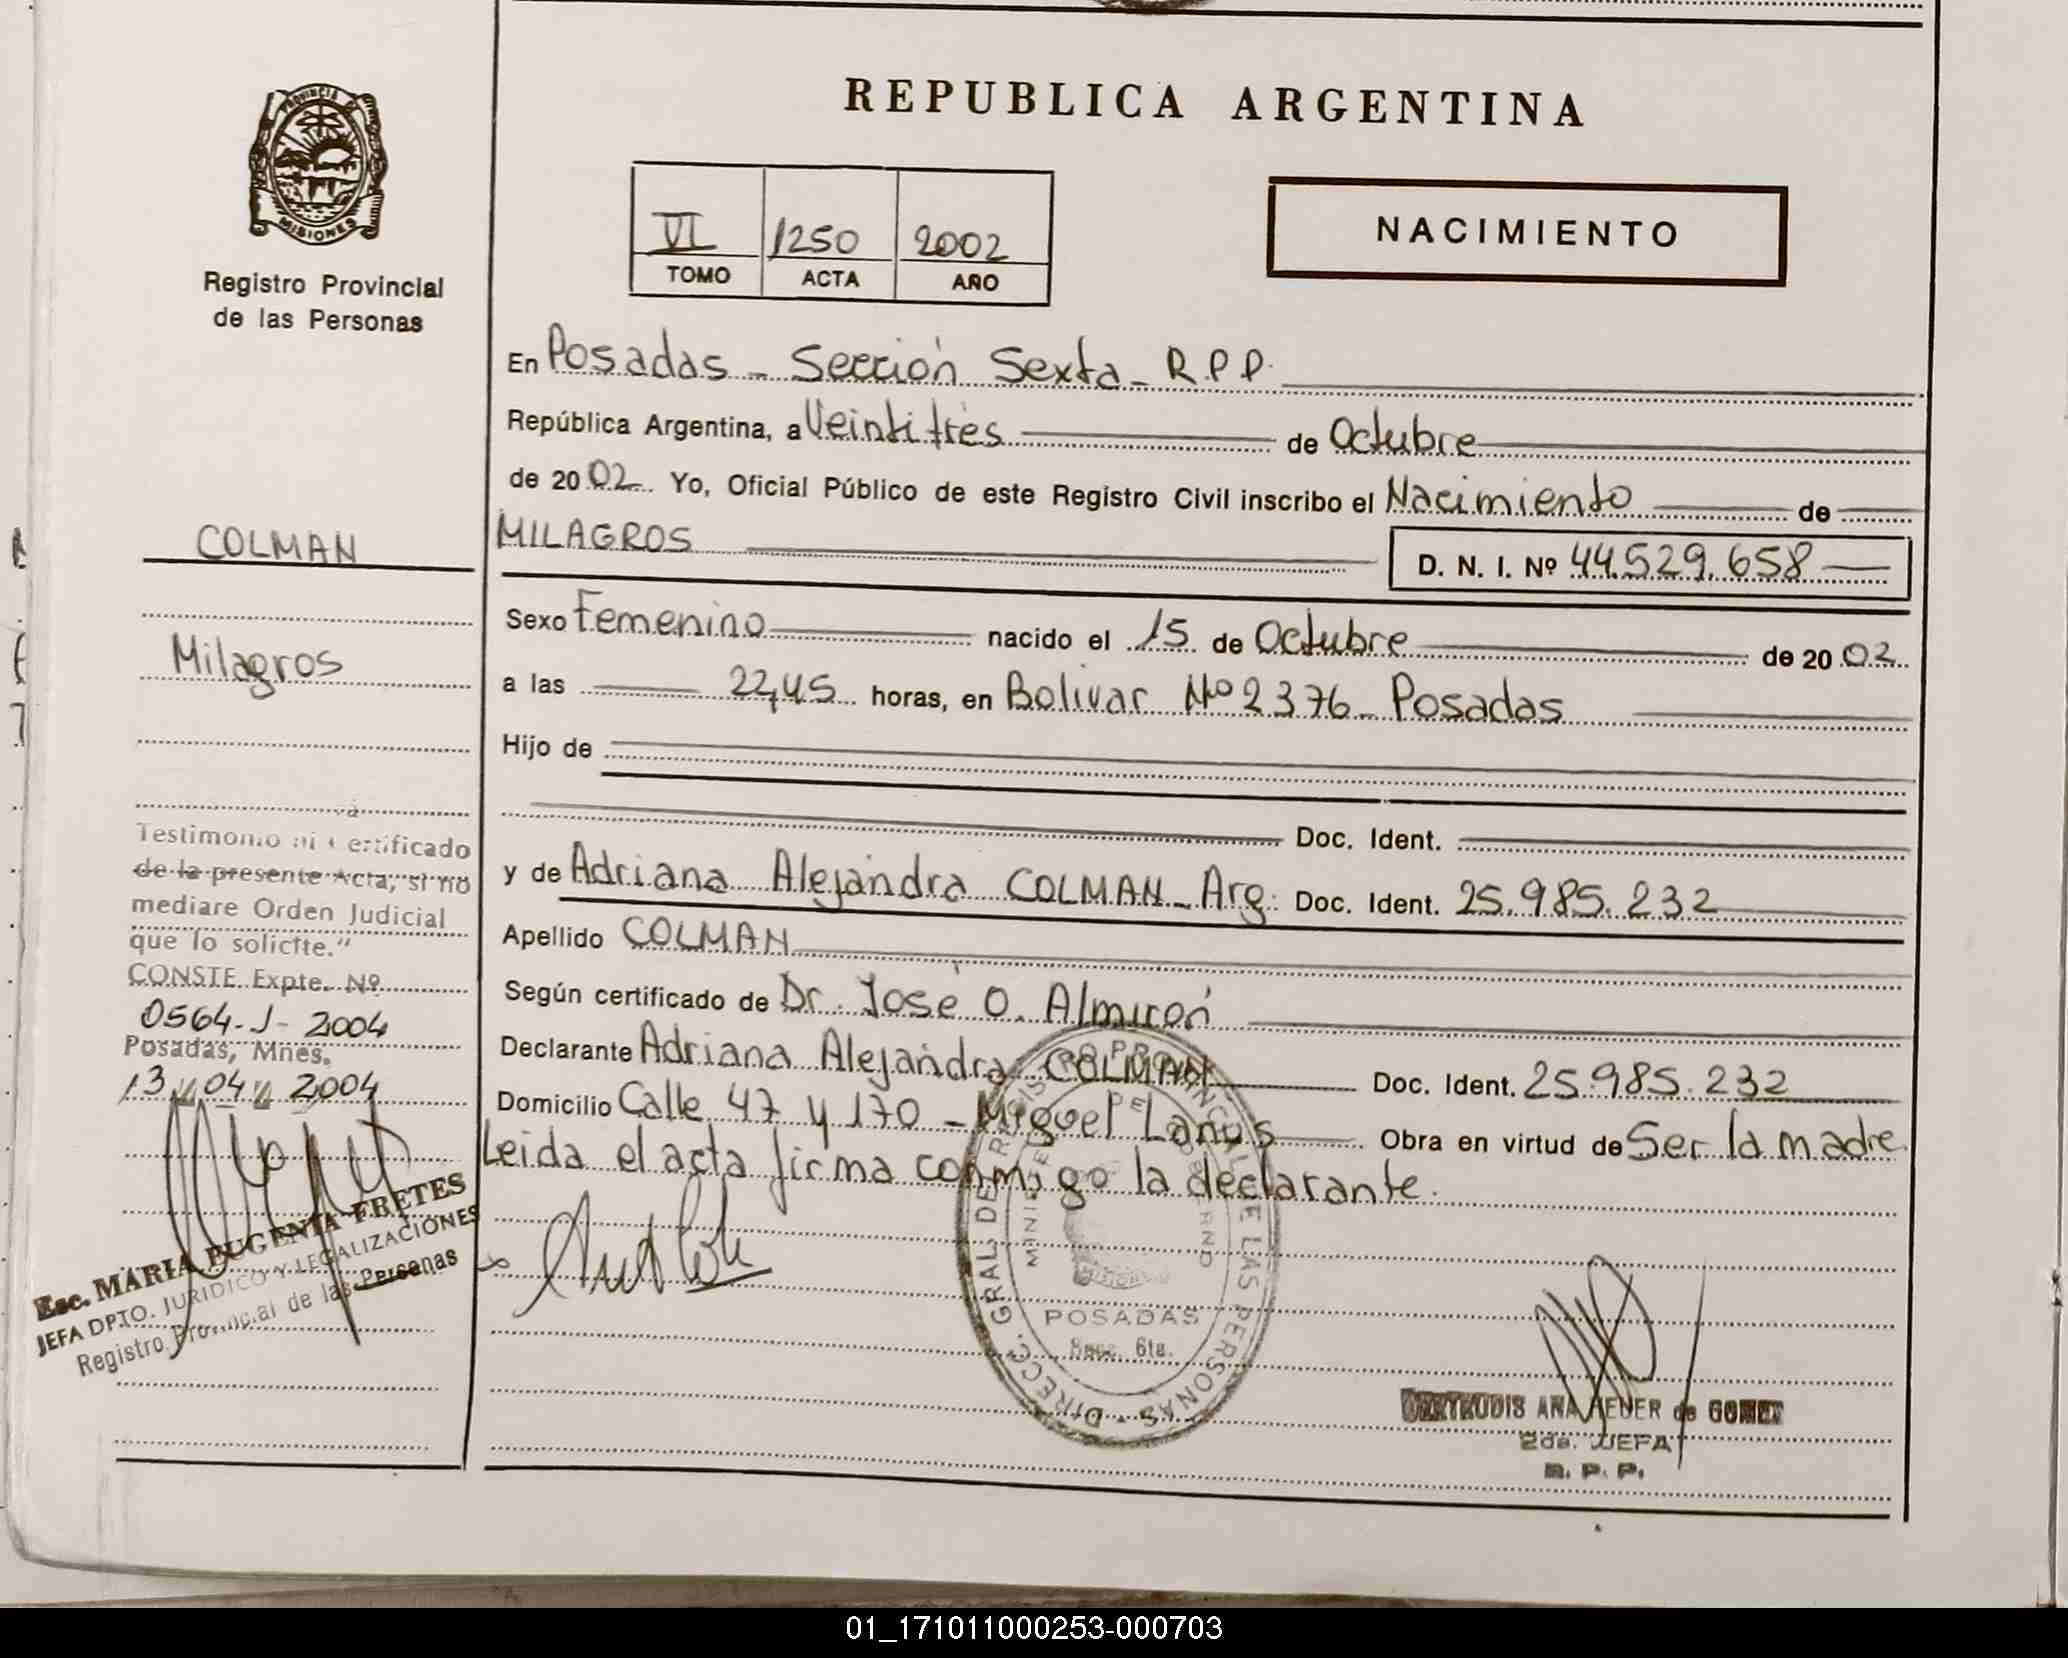 REPUBLICA ARGENTINA
PROVINCIA DE
MISIONES
Registro Provincial
de las Personas
VI 1250 2002
TOMO ACTA AÑO
NACIMIENTO
En Posadas - Sección Sexta - R.P.P.
República Argentina, a Veintitrés de Octubre
de 2002 Yo, Oficial Público de este Registro Civil inscribo el Nacimiento de
MILAGROS D. N. I. Nº 44.529.658
Sexo Femenino nacido el 15 de Octubre de 2002
a las 22,45 horas, en Bolivar Nº 2376 - Posadas
Hijo de
Doc. Ident.
y de Adriana Alejandra COLMAN - Arg. Doc. Ident. 25.985.232
Apellido COLMAN
Según certificado de Dr. José O. Almirón
Declarante Adriana Alejandra COLMAN Doc. Ident. 25.985.232
Domicilio Calle 47 y 170 - Miguel Lanús Obra en virtud de Ser la madre
Leida el acta firma conmigo la declarante.
COLMAN
Milagros
Testimonio ni Certificado
de la presente Acta, si no
mediare Orden Judicial
que lo solicite."
CONSTE Expte. Nº
0564-J-2004
Posadas, Mnes.
13 04 2004
Esc. MARIA EUGENIA FRETES
JEFA DPTO. JURIDICO Y LEGALIZACIONES
Registro Provincial de las Personas
DIRECC. GRAL. DE REGISTRO PROVINCIAL DE LAS PERSONAS
POSADAS
Secc. 6ta.
ANA de GOMEZ
2da. JEFA
R. P. P.
01_171011000253-000703